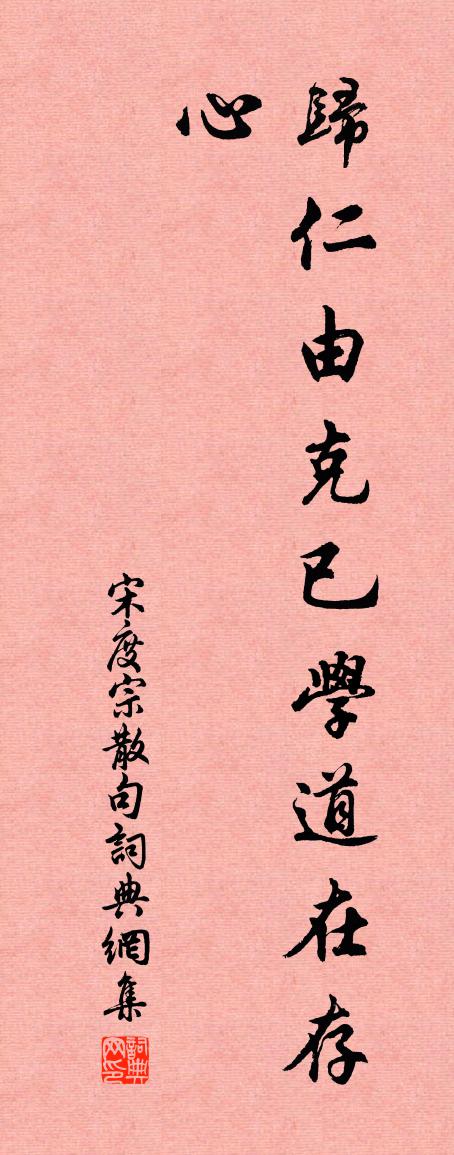 歸仁由克已學道在存
心
宋度宗散句詞典網集
詞典
网印